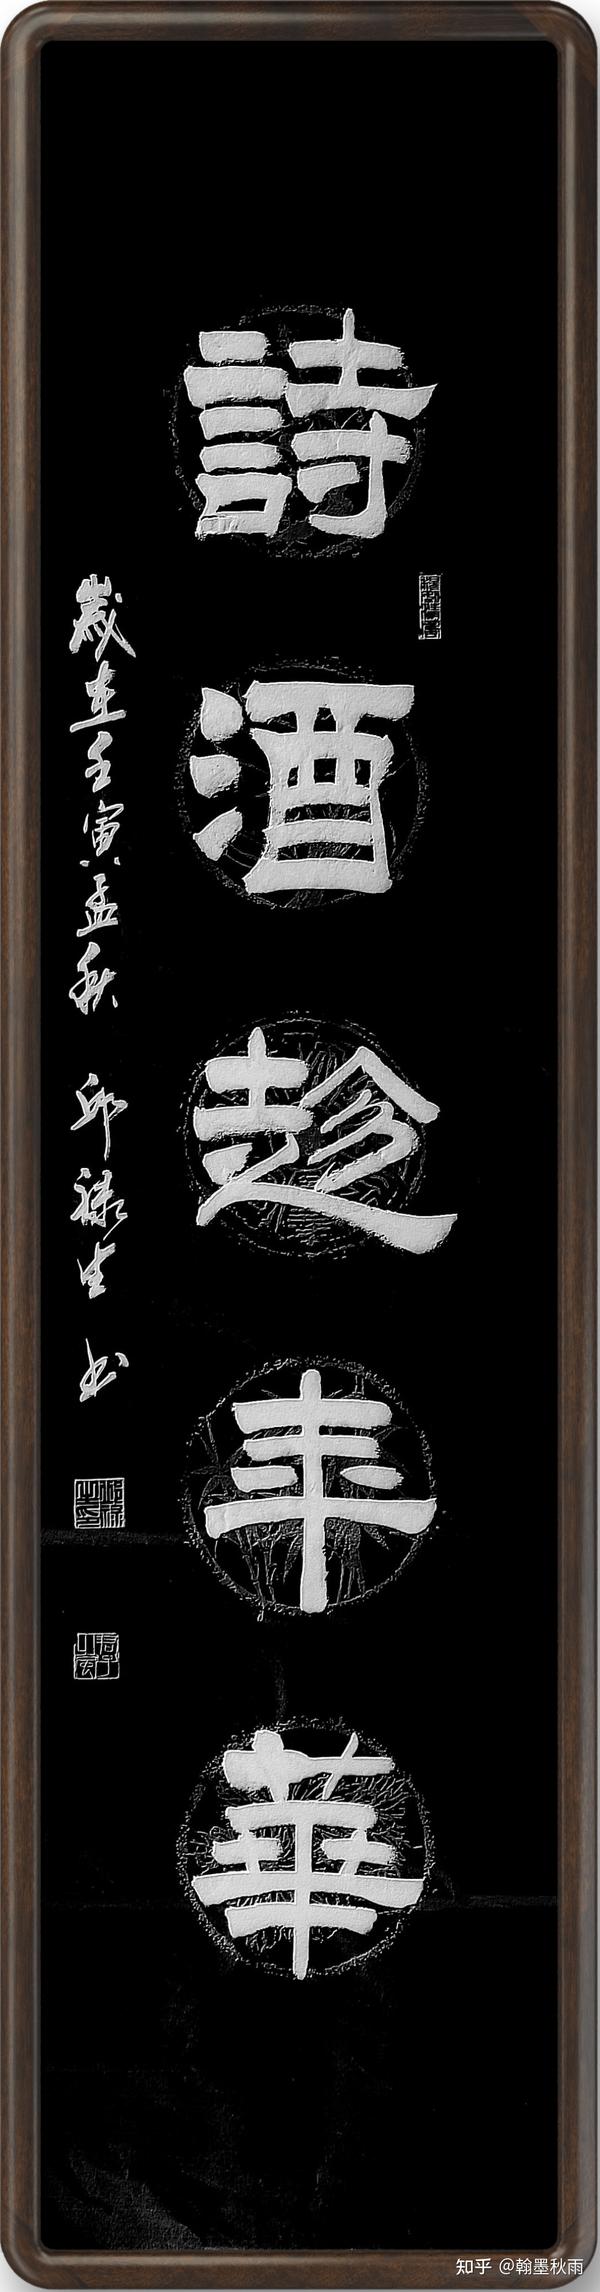 詩酒趁年華
歲在壬寅孟秋 邱祿生書
知乎 @翰墨秋雨